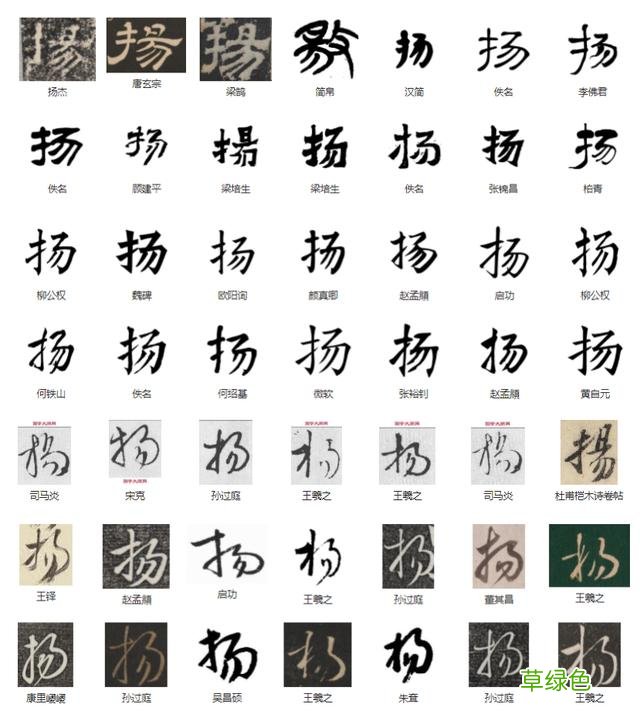 揚 揚 揚 敭 扬 扬 扬
扬杰 唐玄宗 梁鹄 简帛 汉简 佚名 李佛君
扬 扬 揚 扬 扬 扬 扬
佚名 顾建平 梁培生 梁培生 佚名 张锦昌 柏青
扬 扬 扬 扬 扬 扬 扬
柳公权 魏碑 欧阳询 颜真卿 赵孟頫 启功 柳公权
扬 扬 扬 扬 扬 扬 扬
何铁山 佚名 何绍基 微软 张裕钊 赵孟頫 黄自元
扬 扬 扬 扬 扬 扬 揚
司马炎 宋克 孙过庭 王羲之 王羲之 司马炎 杜甫桤木诗卷帖
扬 扬 扬 扬 扬 扬 扬
王铎 赵孟頫 启功 王羲之 孙过庭 董其昌 王羲之
扬 扬 扬 扬 扬 扬 扬
康里巎巎 孙过庭 吴昌硕 王羲之 朱耷 孙过庭 王羲之
草绿色